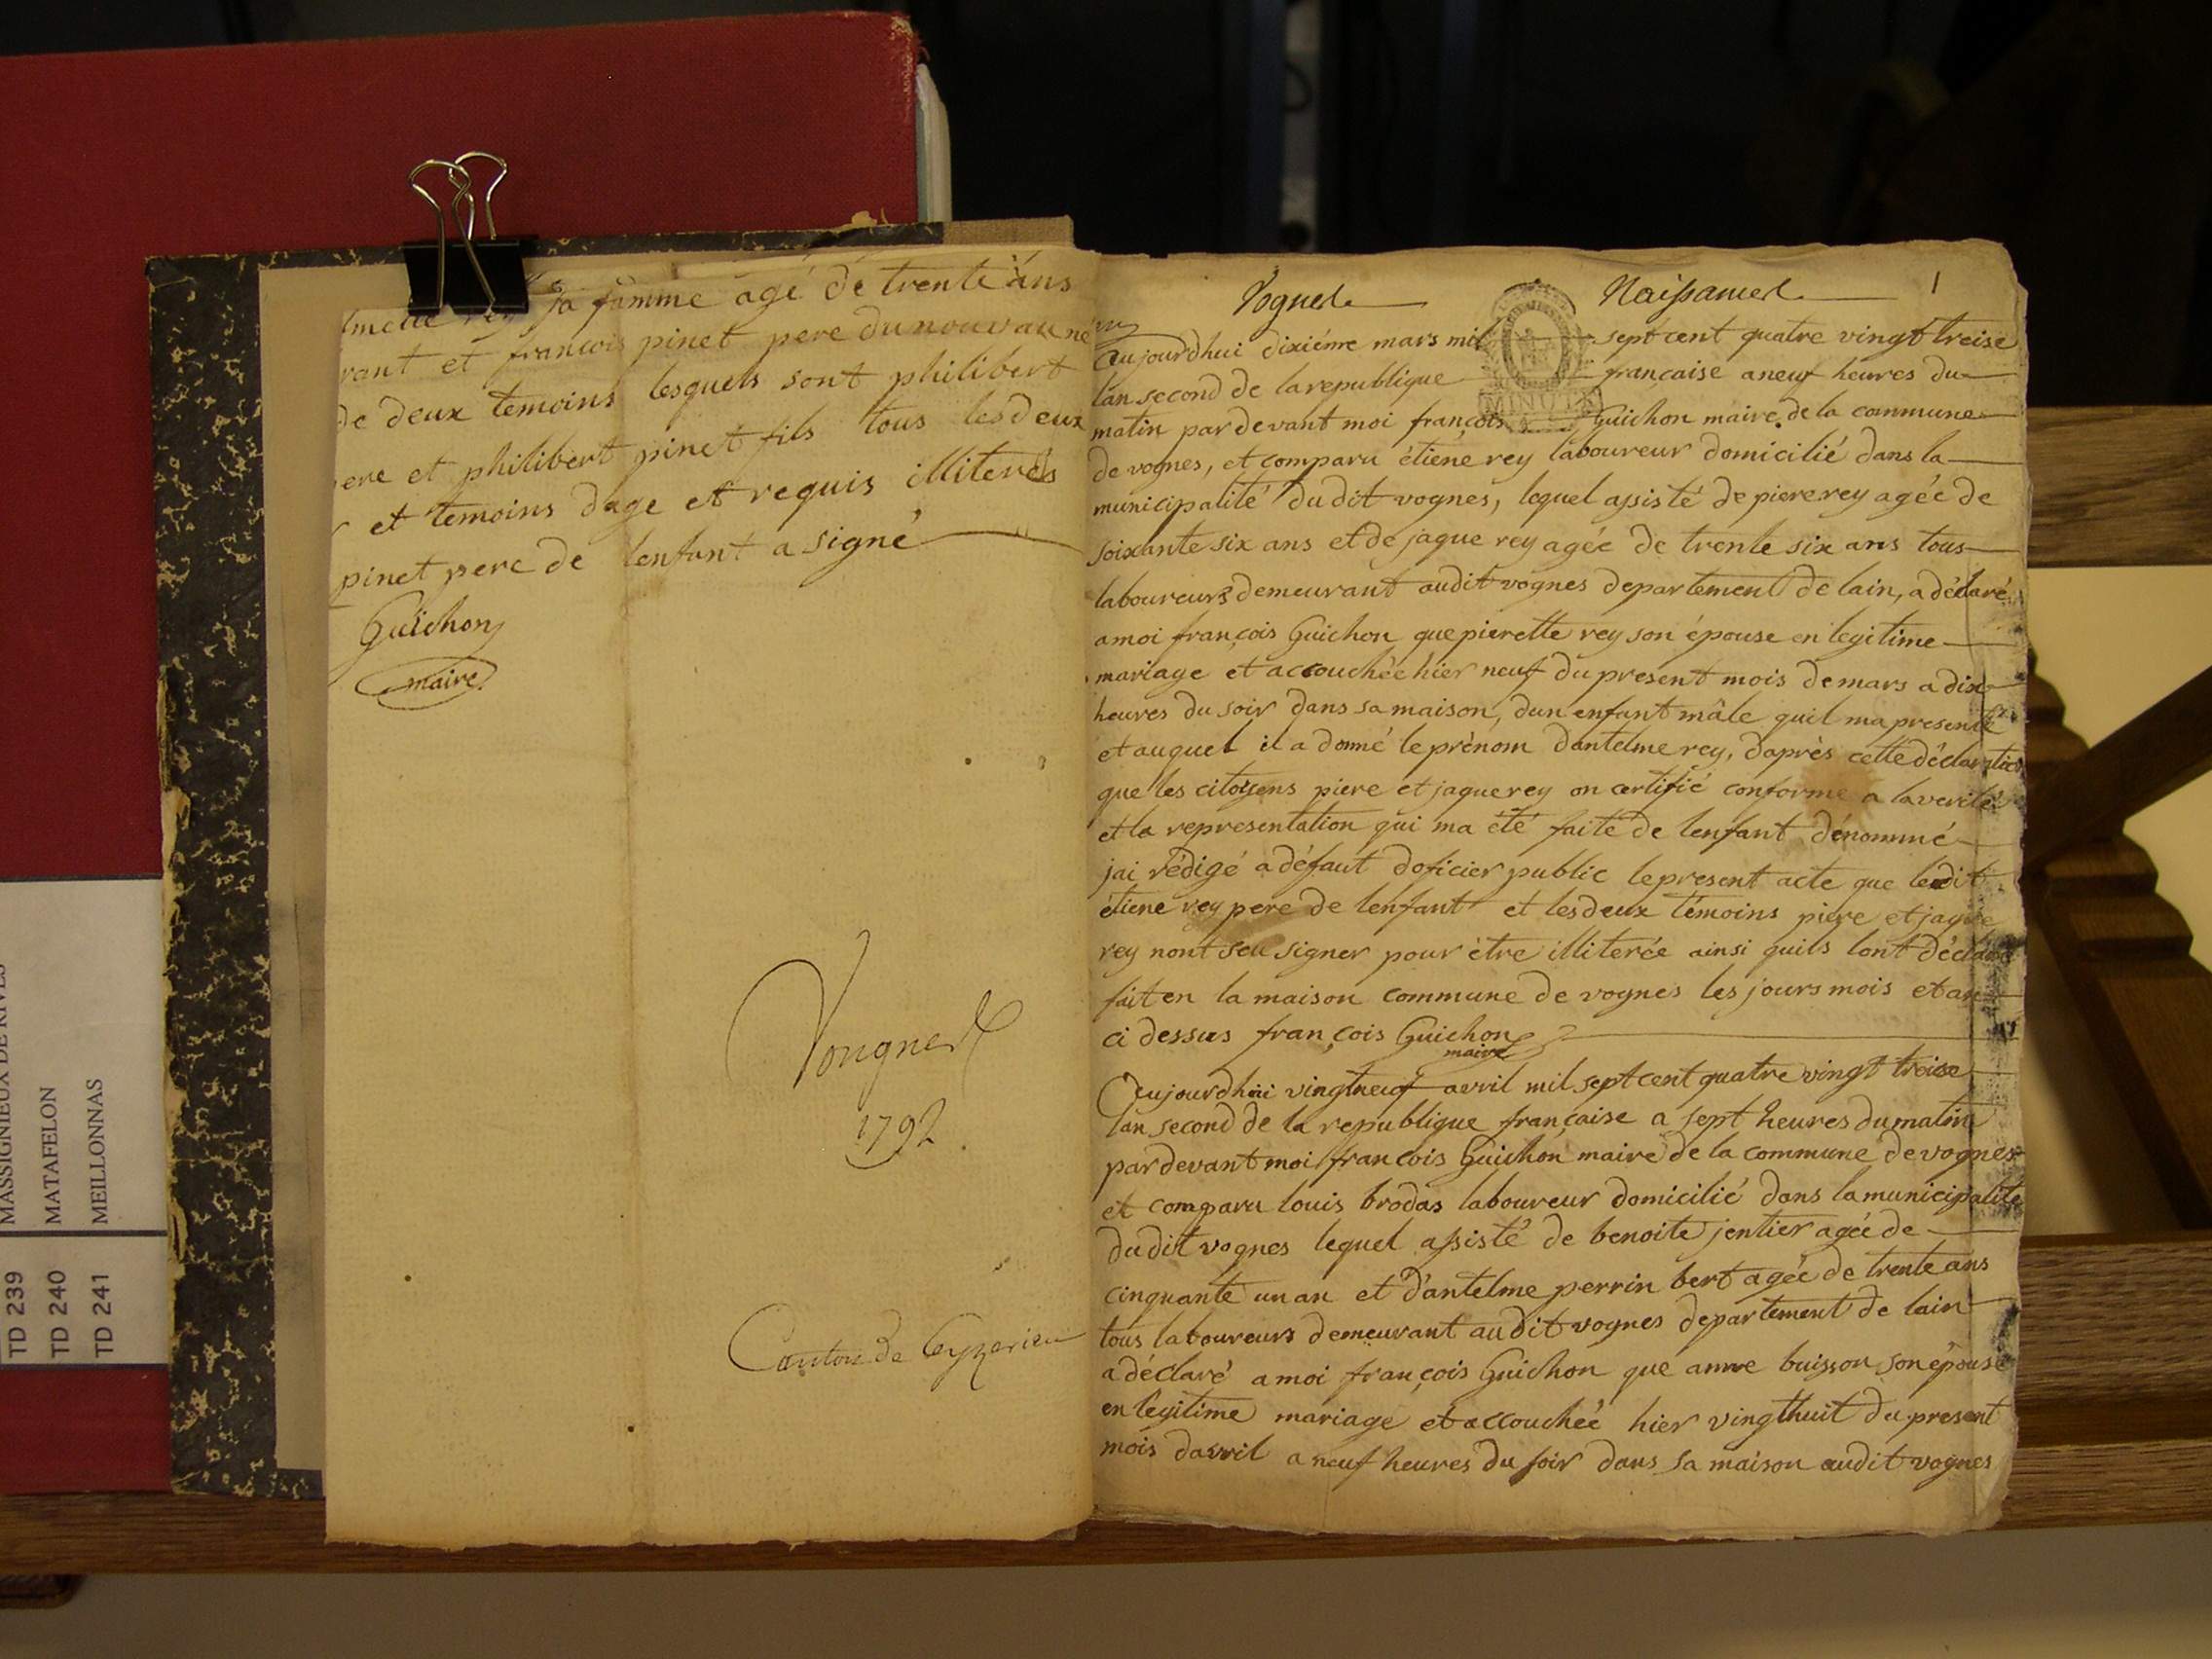 sa famme agé de trente ans
rant et francois pinet pere du nouvau né
de deux temoins lesquels sont philibert
ere et philibert pinet fils tous les deux
et temoins dage et requis illiterés
pinet pere de lenfant a signé
Guichon
maire
Vongnes
1792
Canton de Ceyzerieu
Vognes Naissances 1
Aujourdhui dixiéme mars mil sept cent quatre vingt treise
lan second de la republique francaise a neuf heures du
matin par devant moi françois Guichon maire de la commune
de vognes, et comparu étiene rey laboureur domicilié dans la
municipalité du dit vognes, lequel assisté de piere rey agée de
soixante six ans et de jaque rey agée de trente six ans tous
laboureurs demeurant audit vognes departement de lain, a déclaré
a moi françois Guichon que pierette rey son épouse en legitime
mariage et accouchée hier neuf du present mois de mars a dix
heures du soir dans sa maison, dun enfant mâle quil ma presenté
et auquel il a donné le prènom dantelme rey, daprès cette déclaration
que les citoyens piere et jaque rey on certifié conforme a la verité
et la representation qui ma été faite de lenfant dénommé
jai rédigé a défaut doficier public le present acte que ledit
étiene rey pere de lenfant et les deux témoins piere et jaque
rey nont seu signer pour être illiterée ainsi quils lont déclaré
fait en la maison commune de vognes les jours mois et an
ci dessus françois Guichon
maire
Aujourdhui vingtneuf avril mil sept cent quatre vingt treise
lan second de la republique française a sept heures du matin
par devant moi francois Guichon maire de la commune de vognes
et comparu louis brodas laboureur domicilié dans la municipalité
du dit vognes lequel assisté de benoite jentier agée de
cinquante un an et d'antelme perrin bert agée de trente ans
tous laboureurs demeurant audit vognes departement de lain
a déclaré a moi françois Guichon que anne buisson son épouse
en legitime mariage et accouchée hier vingthuit du present
mois davril a neuf heures du soir dans sa maison audit vognes
MASSIGNIEUX DE RIVES
MATAFELON
MEILLONNAS
TD 239
TD 240
TD 241
MINUTE